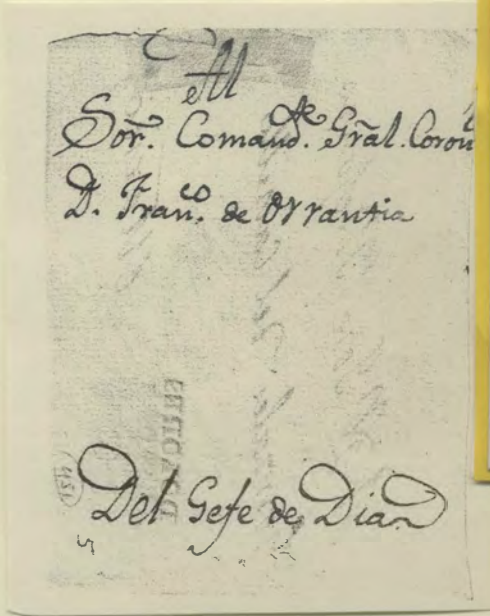 Al
Sor. Comandte. Gral. Coron
D. Franco. de Orrantia
Del Gefe de Dia